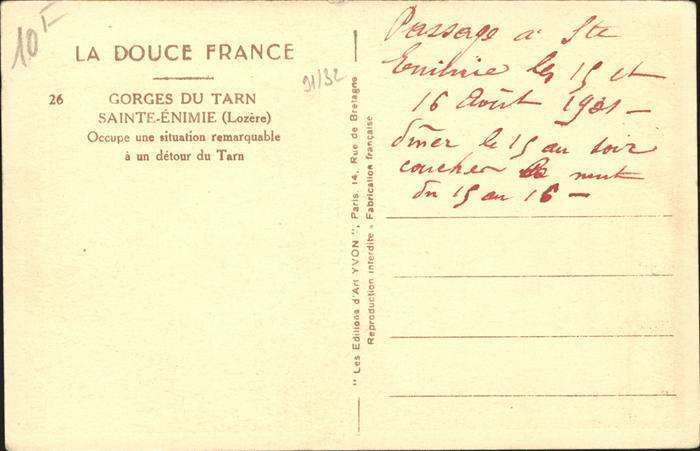 10
LA DOUCE FRANCE
31/32
26 GORGES DU TARN
SAINTE-ÉNIMIE (Lozère)
Occupe une situation remarquable
à un détour du Tarn
" Les Editions d'Art YVON ", Paris, 14, Rue de Bretagne
Reproduction interdite - Fabrication française
Passage à Ste
Enimie les 15 et
16 Août 1931 -
dîner le 15 au soir
coucher nuit
du 15 au 16 -